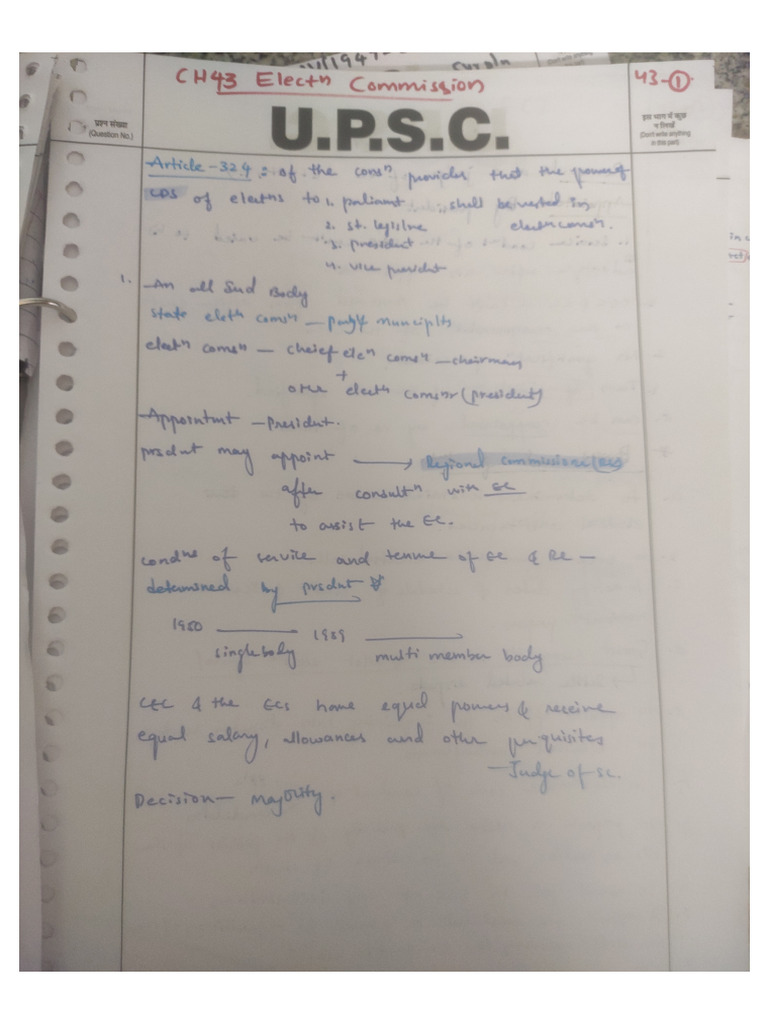 CH43 Electn Commission
43-①
प्रश्न संख्या
(Question No.)
U.P.S.C.
इस भाग में कुछ
न लिखें
(Don't write anything
in this part)
Article-324 : of the consn provides that the power of
CDS of electns to 1. parliamnt shall be vested in
2. st. legislre electn comsn.
3. president
4. vice president
1. An all Ind Body
state electn comsn – muncipltis
electn comsn – cheief elen comsr – chairman
+
othe electn comsnr (president)
Appointmnt – President.
prsdnt may appoint → Regional commissioner (RC)
after consultn with EC
to assist the EC.
condns of service and tenure of EC & RC –
determined by prsdnt
1950 1989
single body multi member body
CEC & the ECs have equal powers & receive
equal salary, allowances and other perquisites
– Judge of SC.
Decision – Majority.